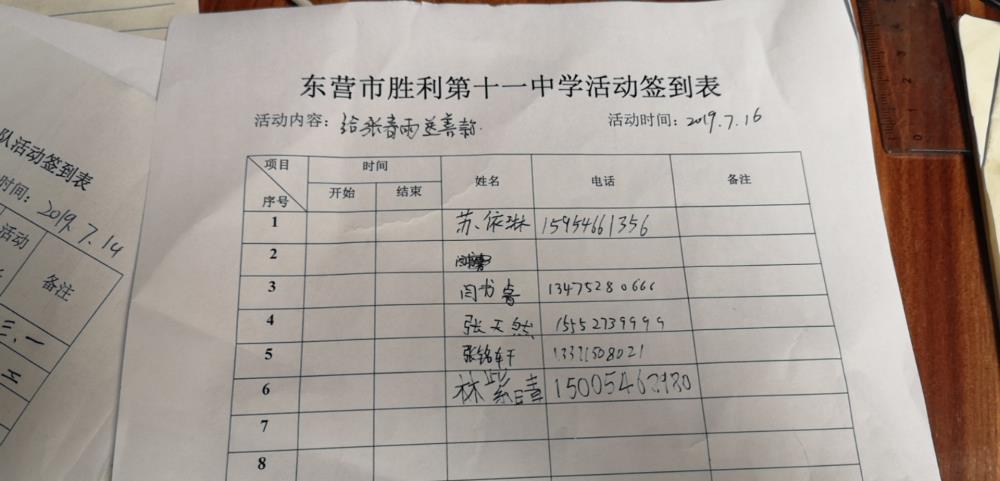 东营市胜利第十一中学活动签到表
活动内容：给张春雨送善款 活动时间：2019.7.16
项目 时间 姓名 电话 备注
序号 开始 结束
1 苏依琳 15954661356
2
3 闫书睿 13475280666
4 张天然 15552739999
5 张铭轩 13371508021
6 林紫喧 15005463980
7
8
队活动签到表
时间：2019.7.14
活动 备注
三、一
三